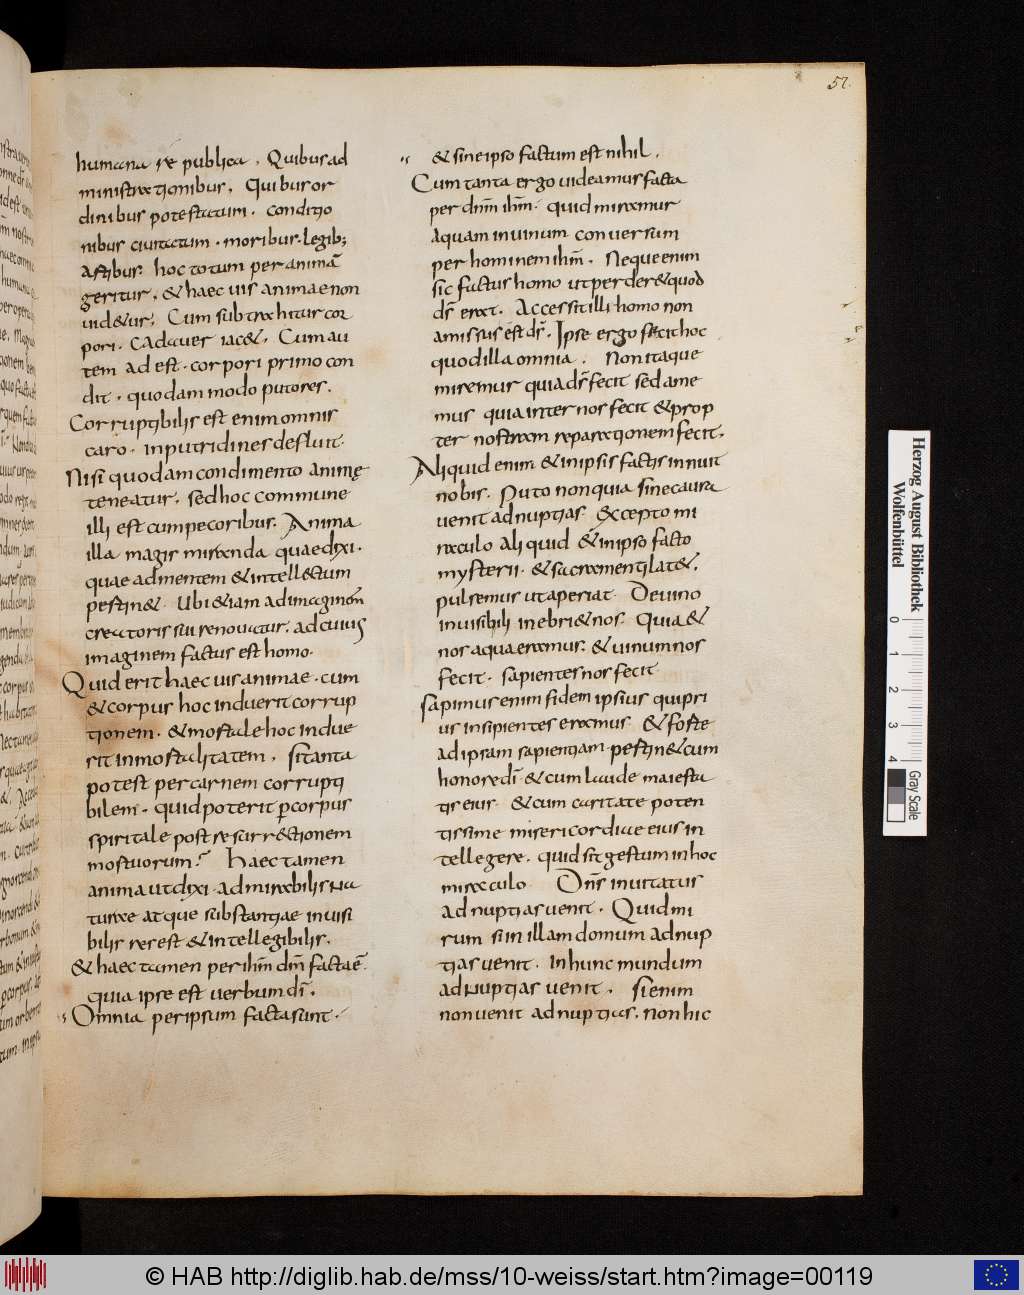 57.
humana re publica . Quibus ad
ministrationibus . Quibus or
dinibus potestatum . conditio
nibus ciuitatum . moribus . legib;
actibus . hoc totum per animā
geritur . & haec uis animae non
uid&ur; Cum subtrahitur cor
pori . cadauer iac& . Cum au
tem adest . corpori primo con
dit . quodam modo putores .
Corruptibilis est enim omnis
caro . in putridines defluit .
Nisi quodam condimento animę
teneatur . sed hoc commune
illi est cum pecoribus . Anima
illa magis miranda quae dixi .
quae ad mentem & intellectum
pertin& . Ubi &iam ad imaginem
creatoris sui renouatur . ad cuius
imaginem factus est homo .
Quid erit haec uis animae . cum
& corpus hoc induerit corrup
tionem . & mortale hoc indue
rit inmortalitatem . si tanta
potest per carnem corrupti
bilem . quid poterit p corpus
spiritale post resurrectionem
mortuorum ? Haec tamen
anima ut dixi . admirabilis na
turae atque substantiae inuisi
bilis res est & intellegibilis .
& haec tamen per ihm̄ dm̄ facta ē .
quia ipse est uerbum dī .
Omnia per ipsum facta sunt .
& sine ipso factum est nihil .
Cum tanta ergo uideamus facta
per dnm̄ ihm̄ . quid miramur
aquam in uinum conuersum
per hominem ihm̄ . Neque enim
sic factus homo ut perder& quod
ds̄ erat . Accessit illi homo non
amissus est ds̄ . Ipse ergo fecit hoc
quod illa omnia . Non itaque
miremur quia ds̄ fecit sed ame
mus quia inter nos fecit & prop
ter nostram reparationem fecit .
Aliquid enim & in ipsis factis innuit
nobis . Puto non quia sine causa
uenit ad nuptias . Excepto mi
raculo aliquid & in ipso facto
mysterii . & sacramenti lat& .
pulsemus ut aperiat . De uino
inuisibili inebri& nos . Quia &
nos aqua eramus . & uinum nos
fecit . sapientes nos fecit
sapimus enim fidem ipsius qui pri
us insipientes eramus & forte
ad ipsam sapientiam pertin& cum
honore dī . & cum laude maiesta
tis eius . & cum caritate poten
tissime misericordiae eius in
tellegere . quid sit gestum in hoc
miraculo Dns̄ inuitatus
ad nuptias uenit . Quid mi
rum si in illam domum ad nup
tias uenit . in hunc mundum
ad nuptias uenit . Si enim
non uenit ad nuptias . non hic
Herzog August Bibliothek
Wolfenbüttel
0 1 2 3 4
Gray Scale
© HAB http://diglib.hab.de/mss/10-weiss/start.htm?image=00119